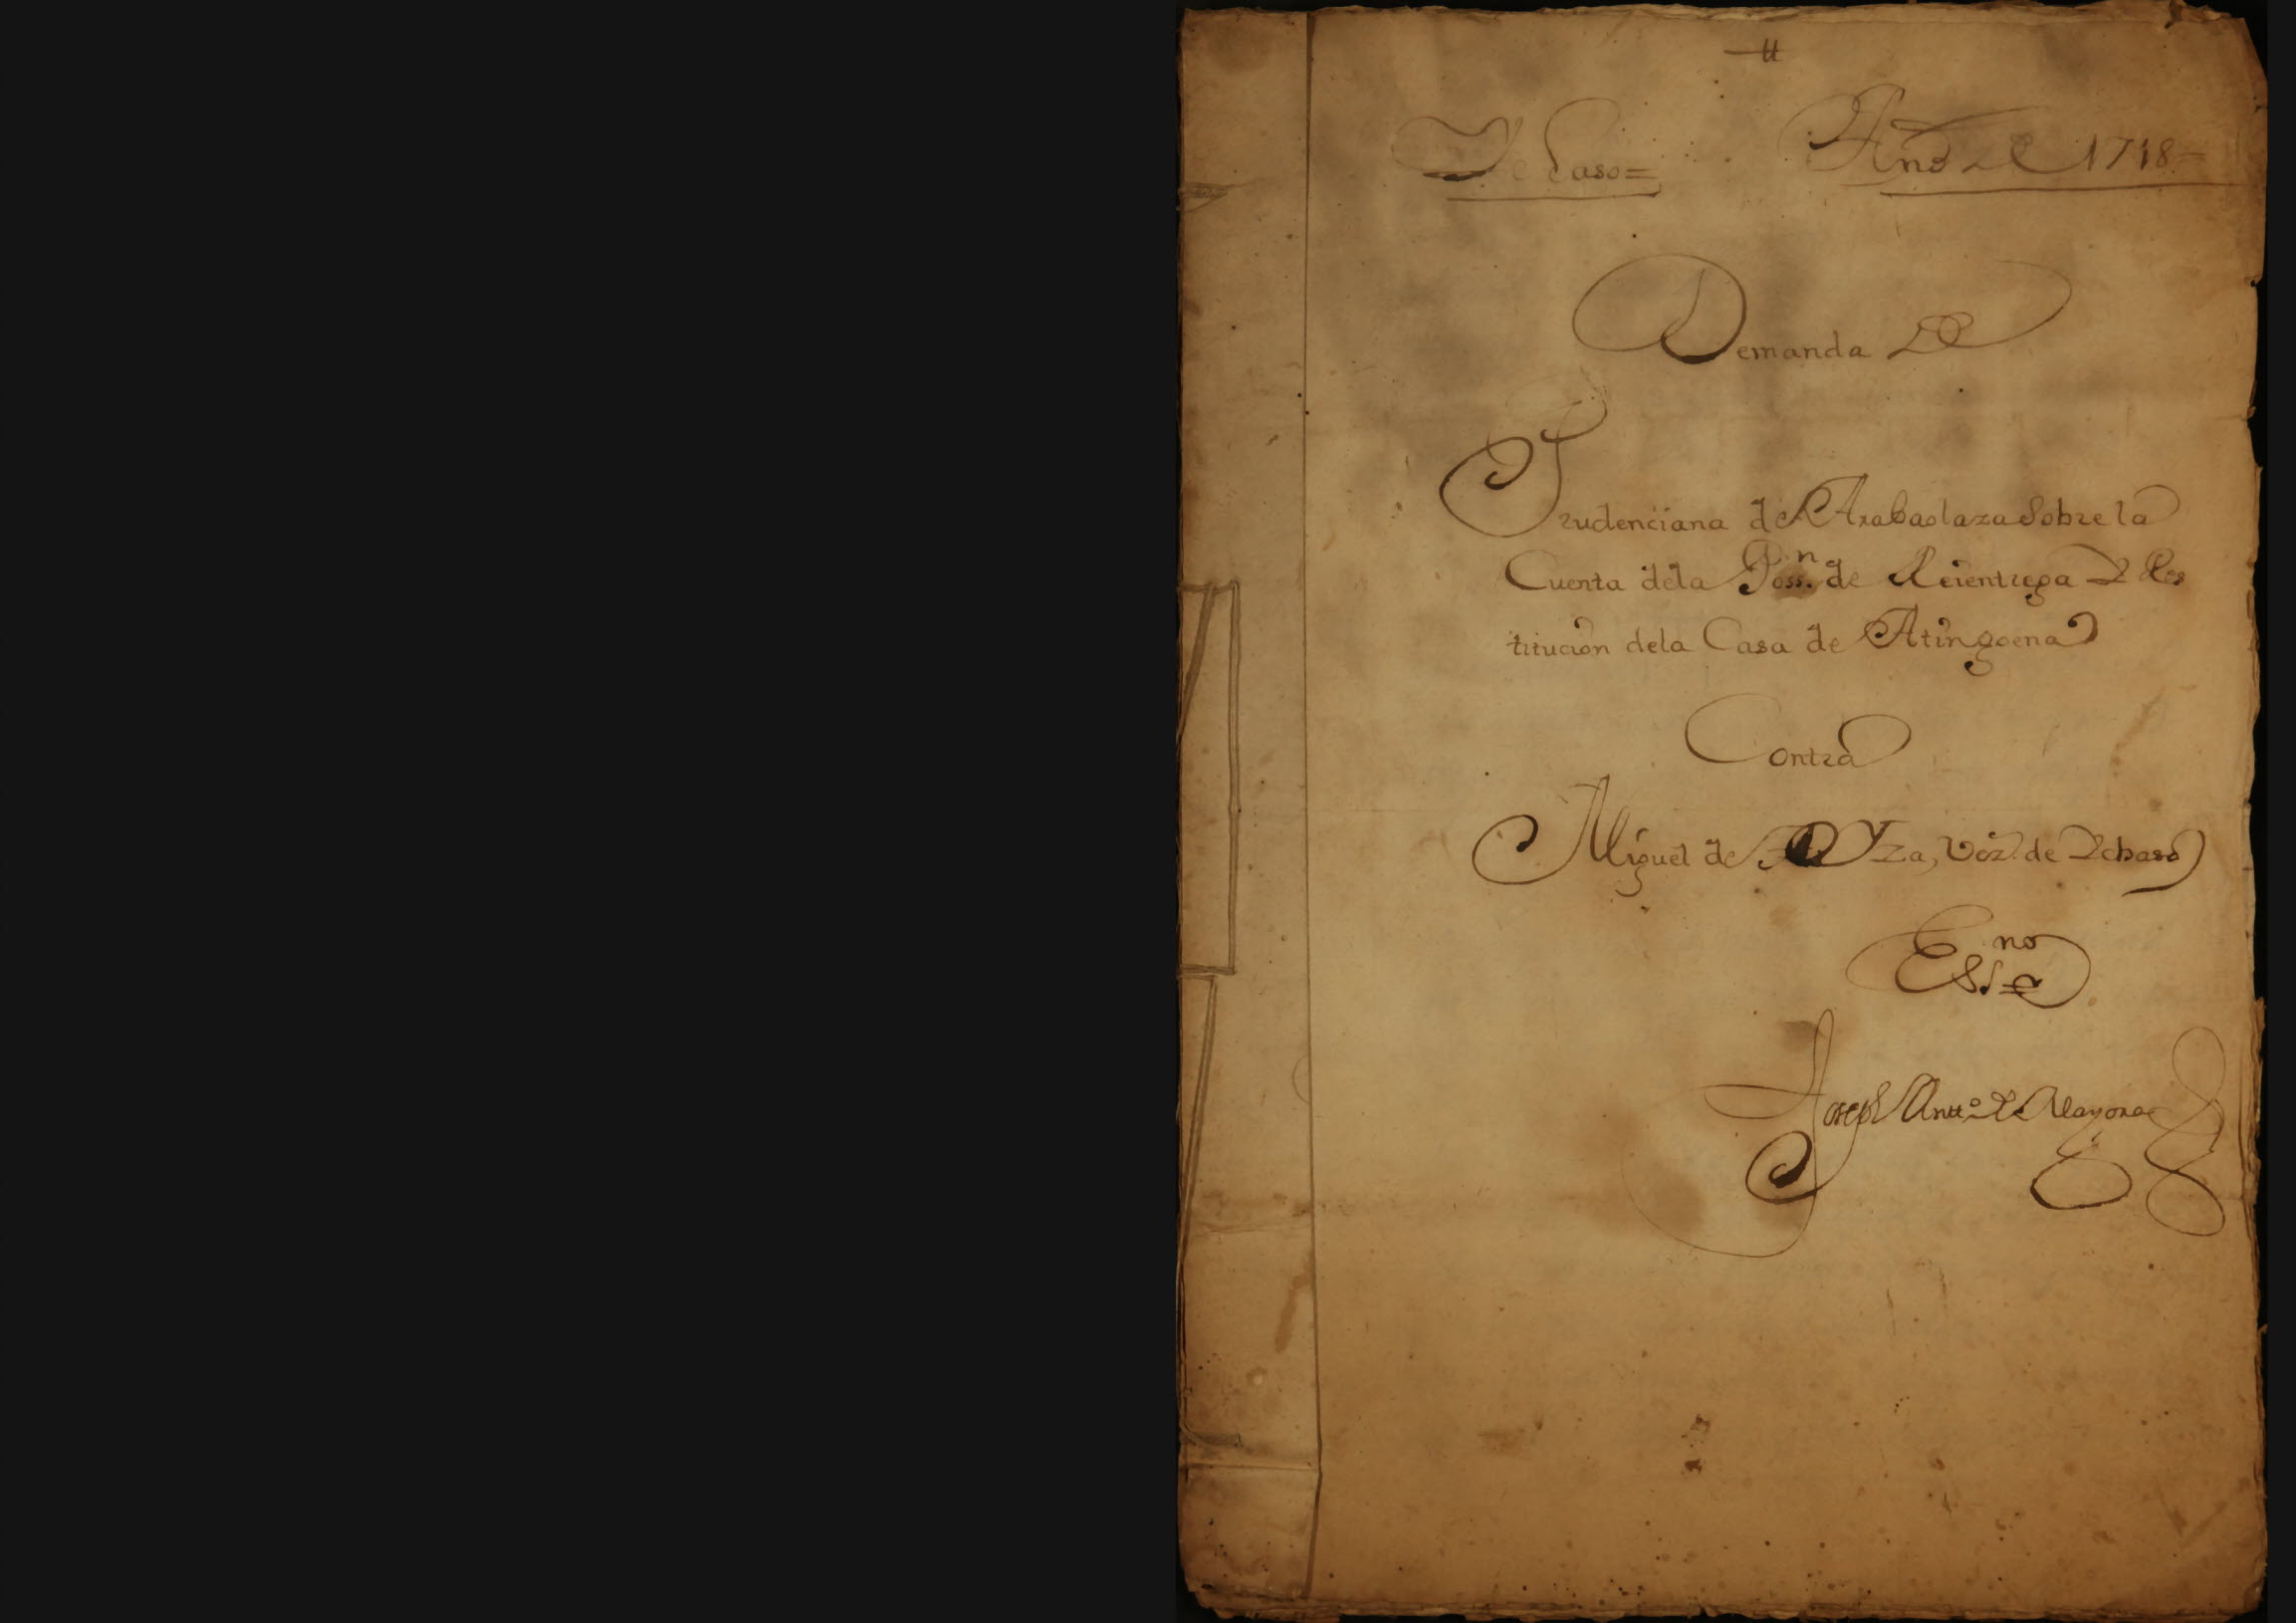 Año de 1718=
Demanda de
Prudenciana de Arabaolaza Sobre la
Cuenta dela Poss.n de Reientrega y Res
titucion dela Casa de Atingoena
Contra
Miguel de Yza, Vez.º de Ychaso
Ess.no
Joseph Antt.º de Mayora